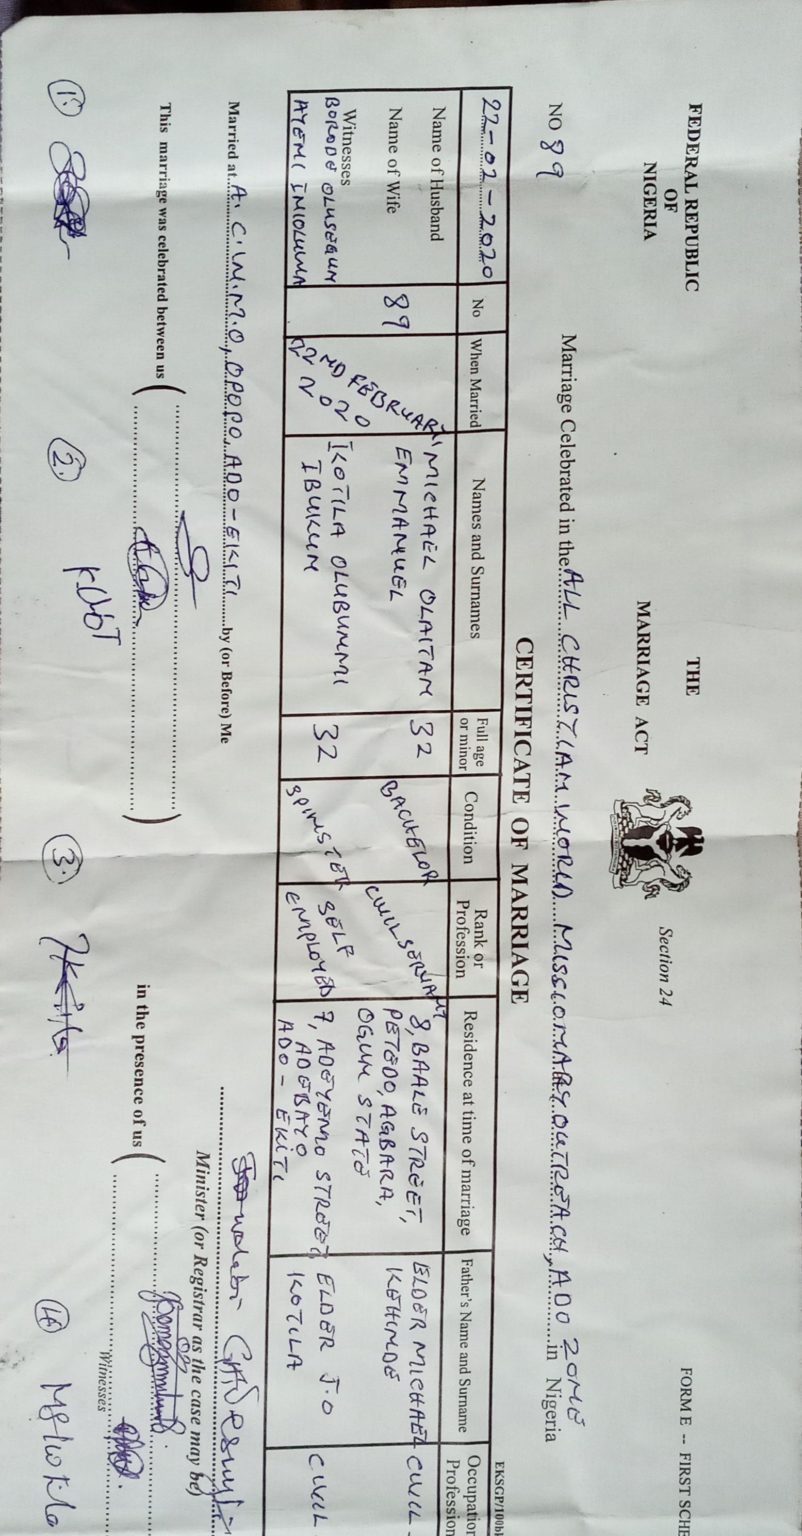 FORM E -- FIRST SCHE
FEDERAL REPUBLIC
OF
NIGERIA
THE
MARRIAGE ACT
Section 24
NO 89
Marriage Celebrated in the ALL CHRISTIAN WORLD MISSIONARY OUTREACH, ADO ZONE in Nigeria
CERTIFICATE OF MARRIAGE
22-02-2020
No
When Married
Names and Surnames
Full age or minor
Condition
Rank or Profession
Residence at time of marriage
Father's Name and Surname
Occupation
Profession
Name of Husband
MICHAEL OLAITAN
EMMANUEL
32
BACHELOR
CIVIL SERVANT
8, BAALE STREET,
PETEDO, AGBARA,
OGUN STATE
ELDER MICHAEL
KEHINDE
CIVIL
Name of Wife
89
22ND FEBRUARY
2020
Witnesses
BORODE OLUSEGUN
AYEMI INIOLUWA
IKOTILA OLUBUNMI
IBUKUN
32
SPINSTER
SELF
EMPLOYED
7, ADEYEMO STREET
ADEBAYO
ADO-EKITI
ELDER J.O
IKOTILA
CIVIL
Married at A.C.W.M.O, OPOPO, ADO-EKITI by (or Before) Me
Minister (or Registrar as the case may be)
This marriage was celebrated between us
in the presence of us
Witnesses
1.
2.
3.
4